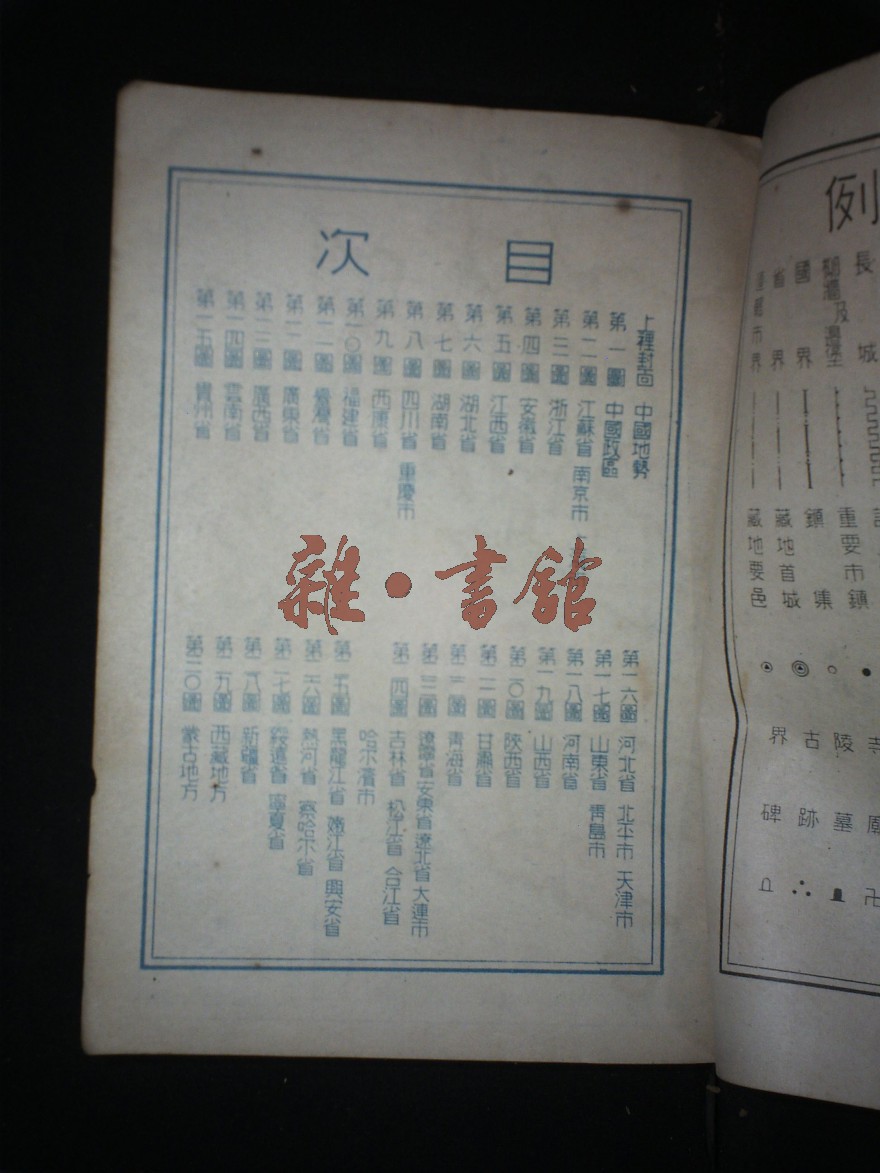 目次
上裡封面 中國地勢
第一圖 中國政區
第二圖 江蘇省 南京市
第三圖 浙江省
第四圖 安徽省
第五圖 江西省
第六圖 湖北省
第七圖 湖南省
第八圖 四川省 重慶市
第九圖 西康省
第一〇圖 福建省
第一一圖 臺灣省
第一二圖 廣東省
第一三圖 廣西省
第一四圖 雲南省
第一五圖 貴州省
第一六圖 河北省 北平市 天津市
第一七圖 山東省 青島市
第一八圖 河南省
第一九圖 山西省
第二〇圖 陝西省
第二一圖 甘肅省
第二二圖 青海省
第二三圖 遼寧省 安東省 遼北省 大連市
第二四圖 吉林省 松江省 合江省
哈尔濱市
第二五圖 黑龍江省 嫩江省 興安省
第二六圖 熱河省 察哈尔省
第二七圖 綏遠省 寧夏省
第二八圖 新疆省
第二九圖 西藏地方
第三〇圖 蒙古地方
雜·書館
例
長城
柳牆及邊壘
國界
省界
重要市鎮
鎮集
藏地首城
藏地要邑
寺廟
陵墓
古跡
界碑